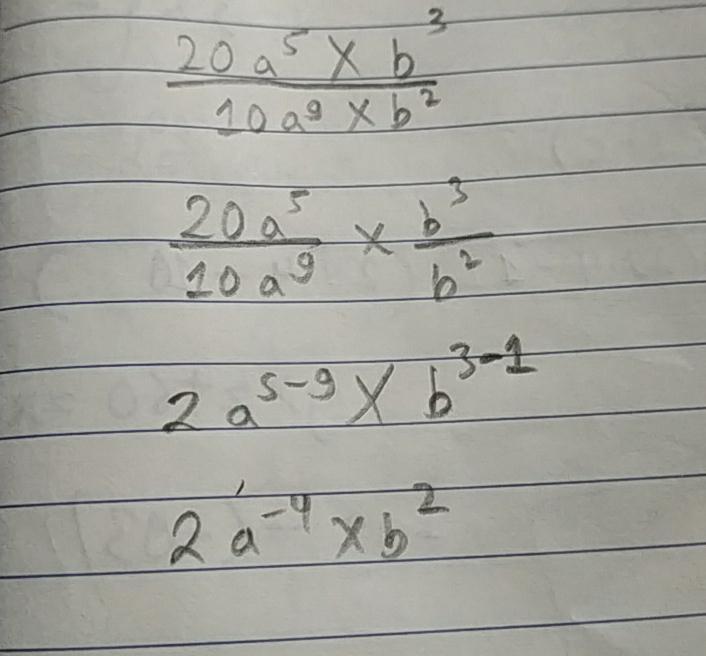 20a⁵ × b³
10a⁹ × b²
20a⁵ × b³
10a⁹ b²
2a⁵⁻⁹ × b³⁻¹
2a⁻⁴ × b²